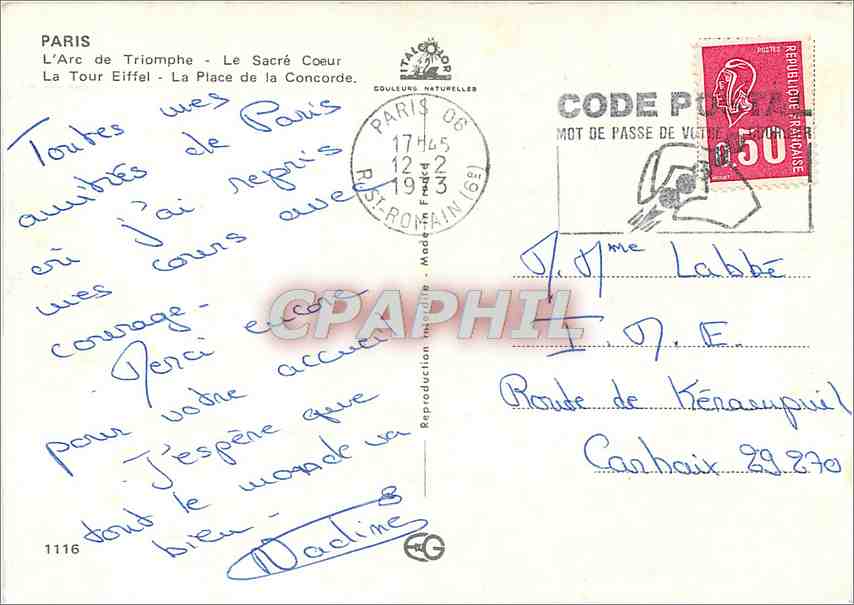 PARIS
L'Arc de Triomphe - Le Sacré Coeur
La Tour Eiffel - La Place de la Concorde.
ITALCOLOR
COULEURS NATURELLES
Toutes mes
amitiés de Paris
où j'ai repris
mes cours avec
courage.
Merci encore
pour votre accueil
J'espère que
tout le monde va
bien -
Nadine
1116
EKG
Reproduction interdite - Made in France
PARIS 06
17H45
12-2
1973
R.ST-ROMAIN (6e)
CODE POSTAL
MOT DE PASSE DE VOTRE COURRIER
POSTES
REPUBLIQUE FRANÇAISE
0,50
M. Mme Labbé
I. M. E.
Route de Kérampuil
Carhaix 29270
CPAPHIL